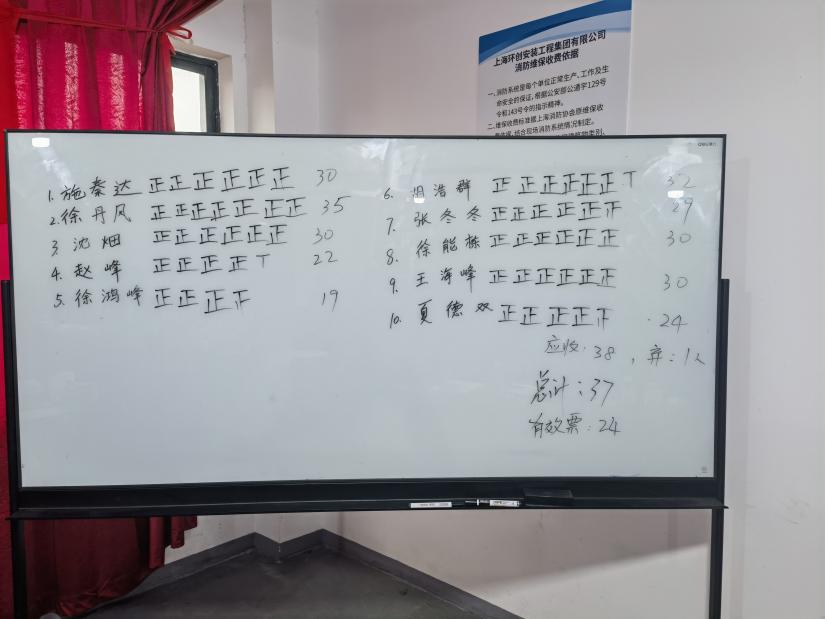 上海环创安装工程集团有限公司
消防维保收费依据
一、消防系统是每个单位正常生产、工作及生
命安全的保证，根据公安部公通字129号
令和143号令的指示精神。
二、维保收费标准据上海消防协会原维保收
费依据，结合现场消防系统情况制定。
1.施秦达 正正正正正正 30
2.徐丹风 正正正正正正正 35
3.沈畑 正正正正正正 30
4.赵峰 正正正正T 22
5.徐鸿峰 正正正正 19
6.胡浩群 正正正正正正T 32
7.张冬冬 正正正正正正 29
8.徐能栋 正正正正正正 30
9.王海峰 正正正正正正 30
10.夏德双 正正正正正 24
应收:38，弃:1人
总计:37
有效票:24